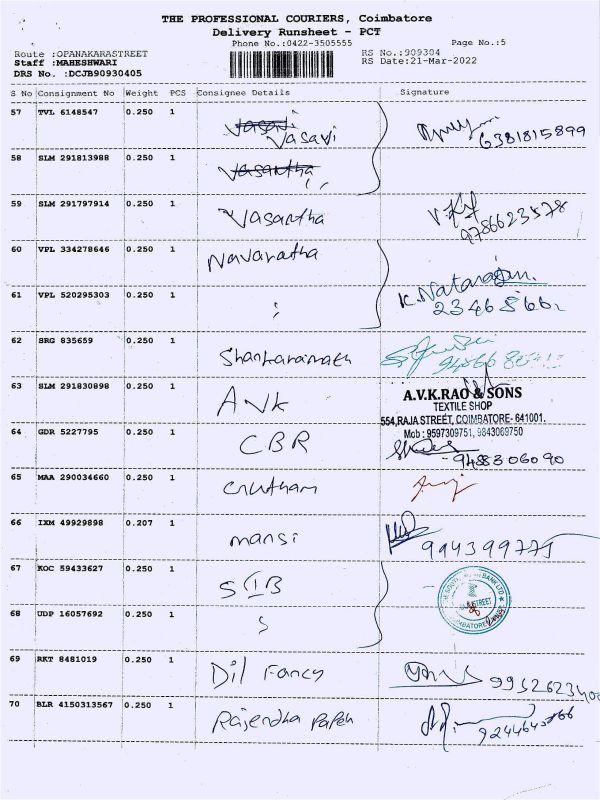 THE PROFESSIONAL COURIERS, Coimbatore
Delivery Runsheet - PCT
Phone No.:0422-3505555
Page No.:5
Route :OPANAKARASTREET
RS No.:909304
Staff :MAHESHWARI
RS Date:21-Mar-2022
DRS No. :DCJB90930405
S No Consignment No Weight PCS Consignee Details Signature
57 TVL 6148547 0.250 1 Vasavi 6381815899
58 SLM 291813988 0.250 1 Vasantha
59 SLM 291797914 0.250 1 Vasantha 9786623578
60 VPL 334278646 0.250 1 Navaratha
K. Natarajan
61 VPL 520295303 0.250 1
62 SRG 835659 0.250 1
63 SLM 291830898 0.250 1 AVK
A.V.K.RAO & SONS
TEXTILE SHOP
554,RAJA STREET, COIMBATORE- 641001.
Mob : 9597309751, 9843069750
64 GDR 5227795 0.250 1 CBR 9488306090
65 MAA 290034660 0.250 1
66 IXM 49929898 0.207 1 mansi
67 KOC 59433627 0.250 1 SIB
68 UDP 16057692 0.250 1
69 RKT 8481019 0.250 1 Dil Fancy
70 BLR 4150313567 0.250 1 Rajendha